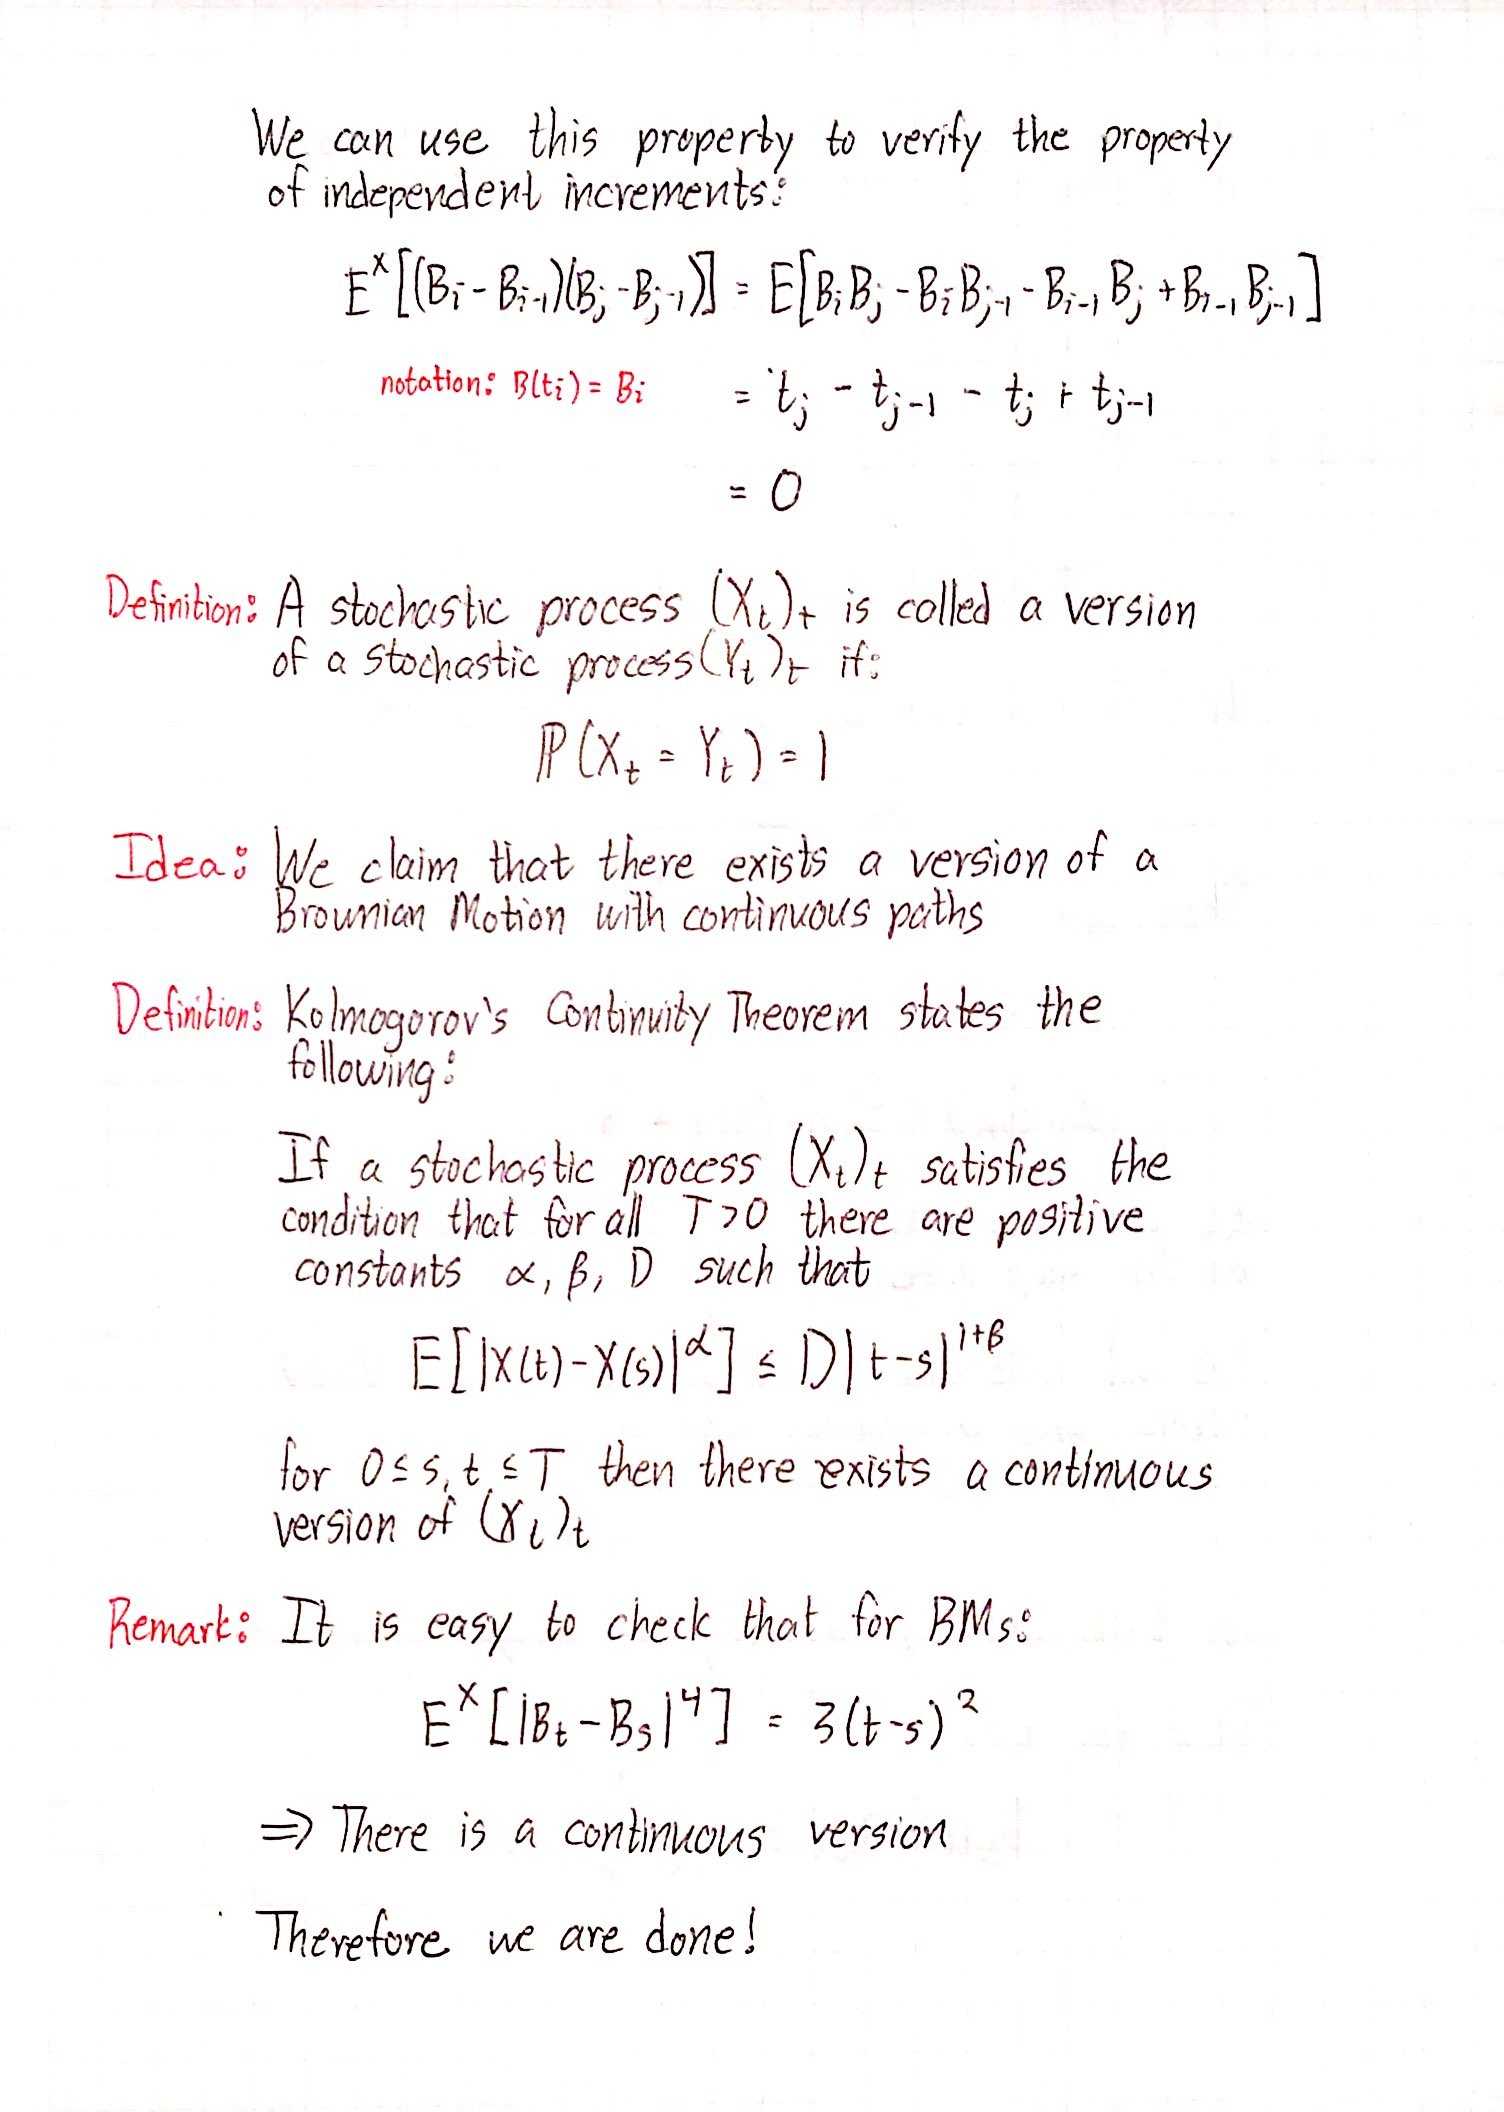 We can use this property to verify the property
of independent increments:
E^x[(B_i - B_{i-1})(B_j - B_{j-1})] = E[B_i B_j - B_i B_{j-1} - B_{i-1} B_j + B_{i-1} B_{j-1}]
notation: B(t_i) = B_i = t_j - t_{j-1} - t_j + t_{j-1}
= 0
Definition: A stochastic process (X_t)_t is called a version
of a stochastic process (Y_t)_t if:
ℙ(X_t = Y_t) = 1
Idea: We claim that there exists a version of a
Brownian Motion with continuous paths
Definition: Kolmogorov's Continuity Theorem states the
following:
If a stochastic process (X_t)_t satisfies the
condition that for all T>0 there are positive
constants α, β, D such that
E[|X(t)-X(s)|^α] ≤ D|t-s|^{1+β}
for 0≤s,t≤T then there exists a continuous
version of (X_t)_t
Remark: It is easy to check that for BMs:
E^x[|B_t - B_s|^4] = 3(t-s)^2
⇒ There is a continuous version
Therefore we are done!